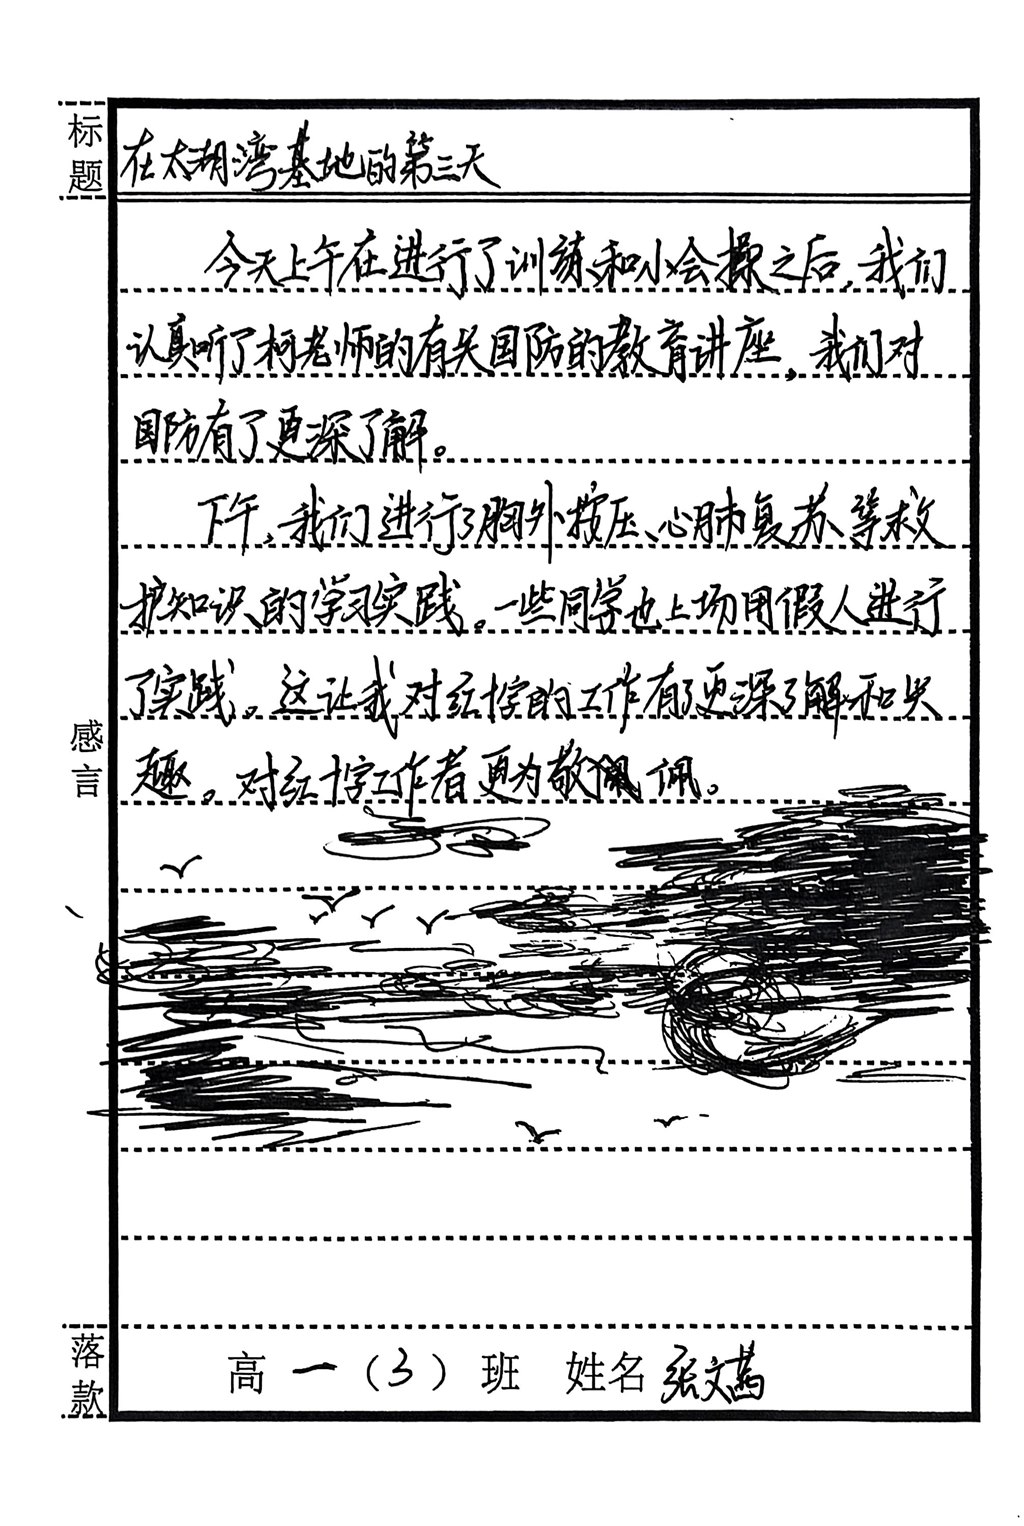 标题
在太湖湾基地的第三天
今天上午在进行了训练和小会操之后，我们
认真听了柯老师的有关国防的教育讲座，我们对
国防有了更深了解。
下午，我们进行了胸外按压、心肺复苏等救
护知识的学习实践。一些同学也上场用假人进行
了实践。这让我对红十字的工作有了更深了解和兴
趣。对红十字工作者更为敬佩。
感言
落款
高一（3）班 姓名 张文